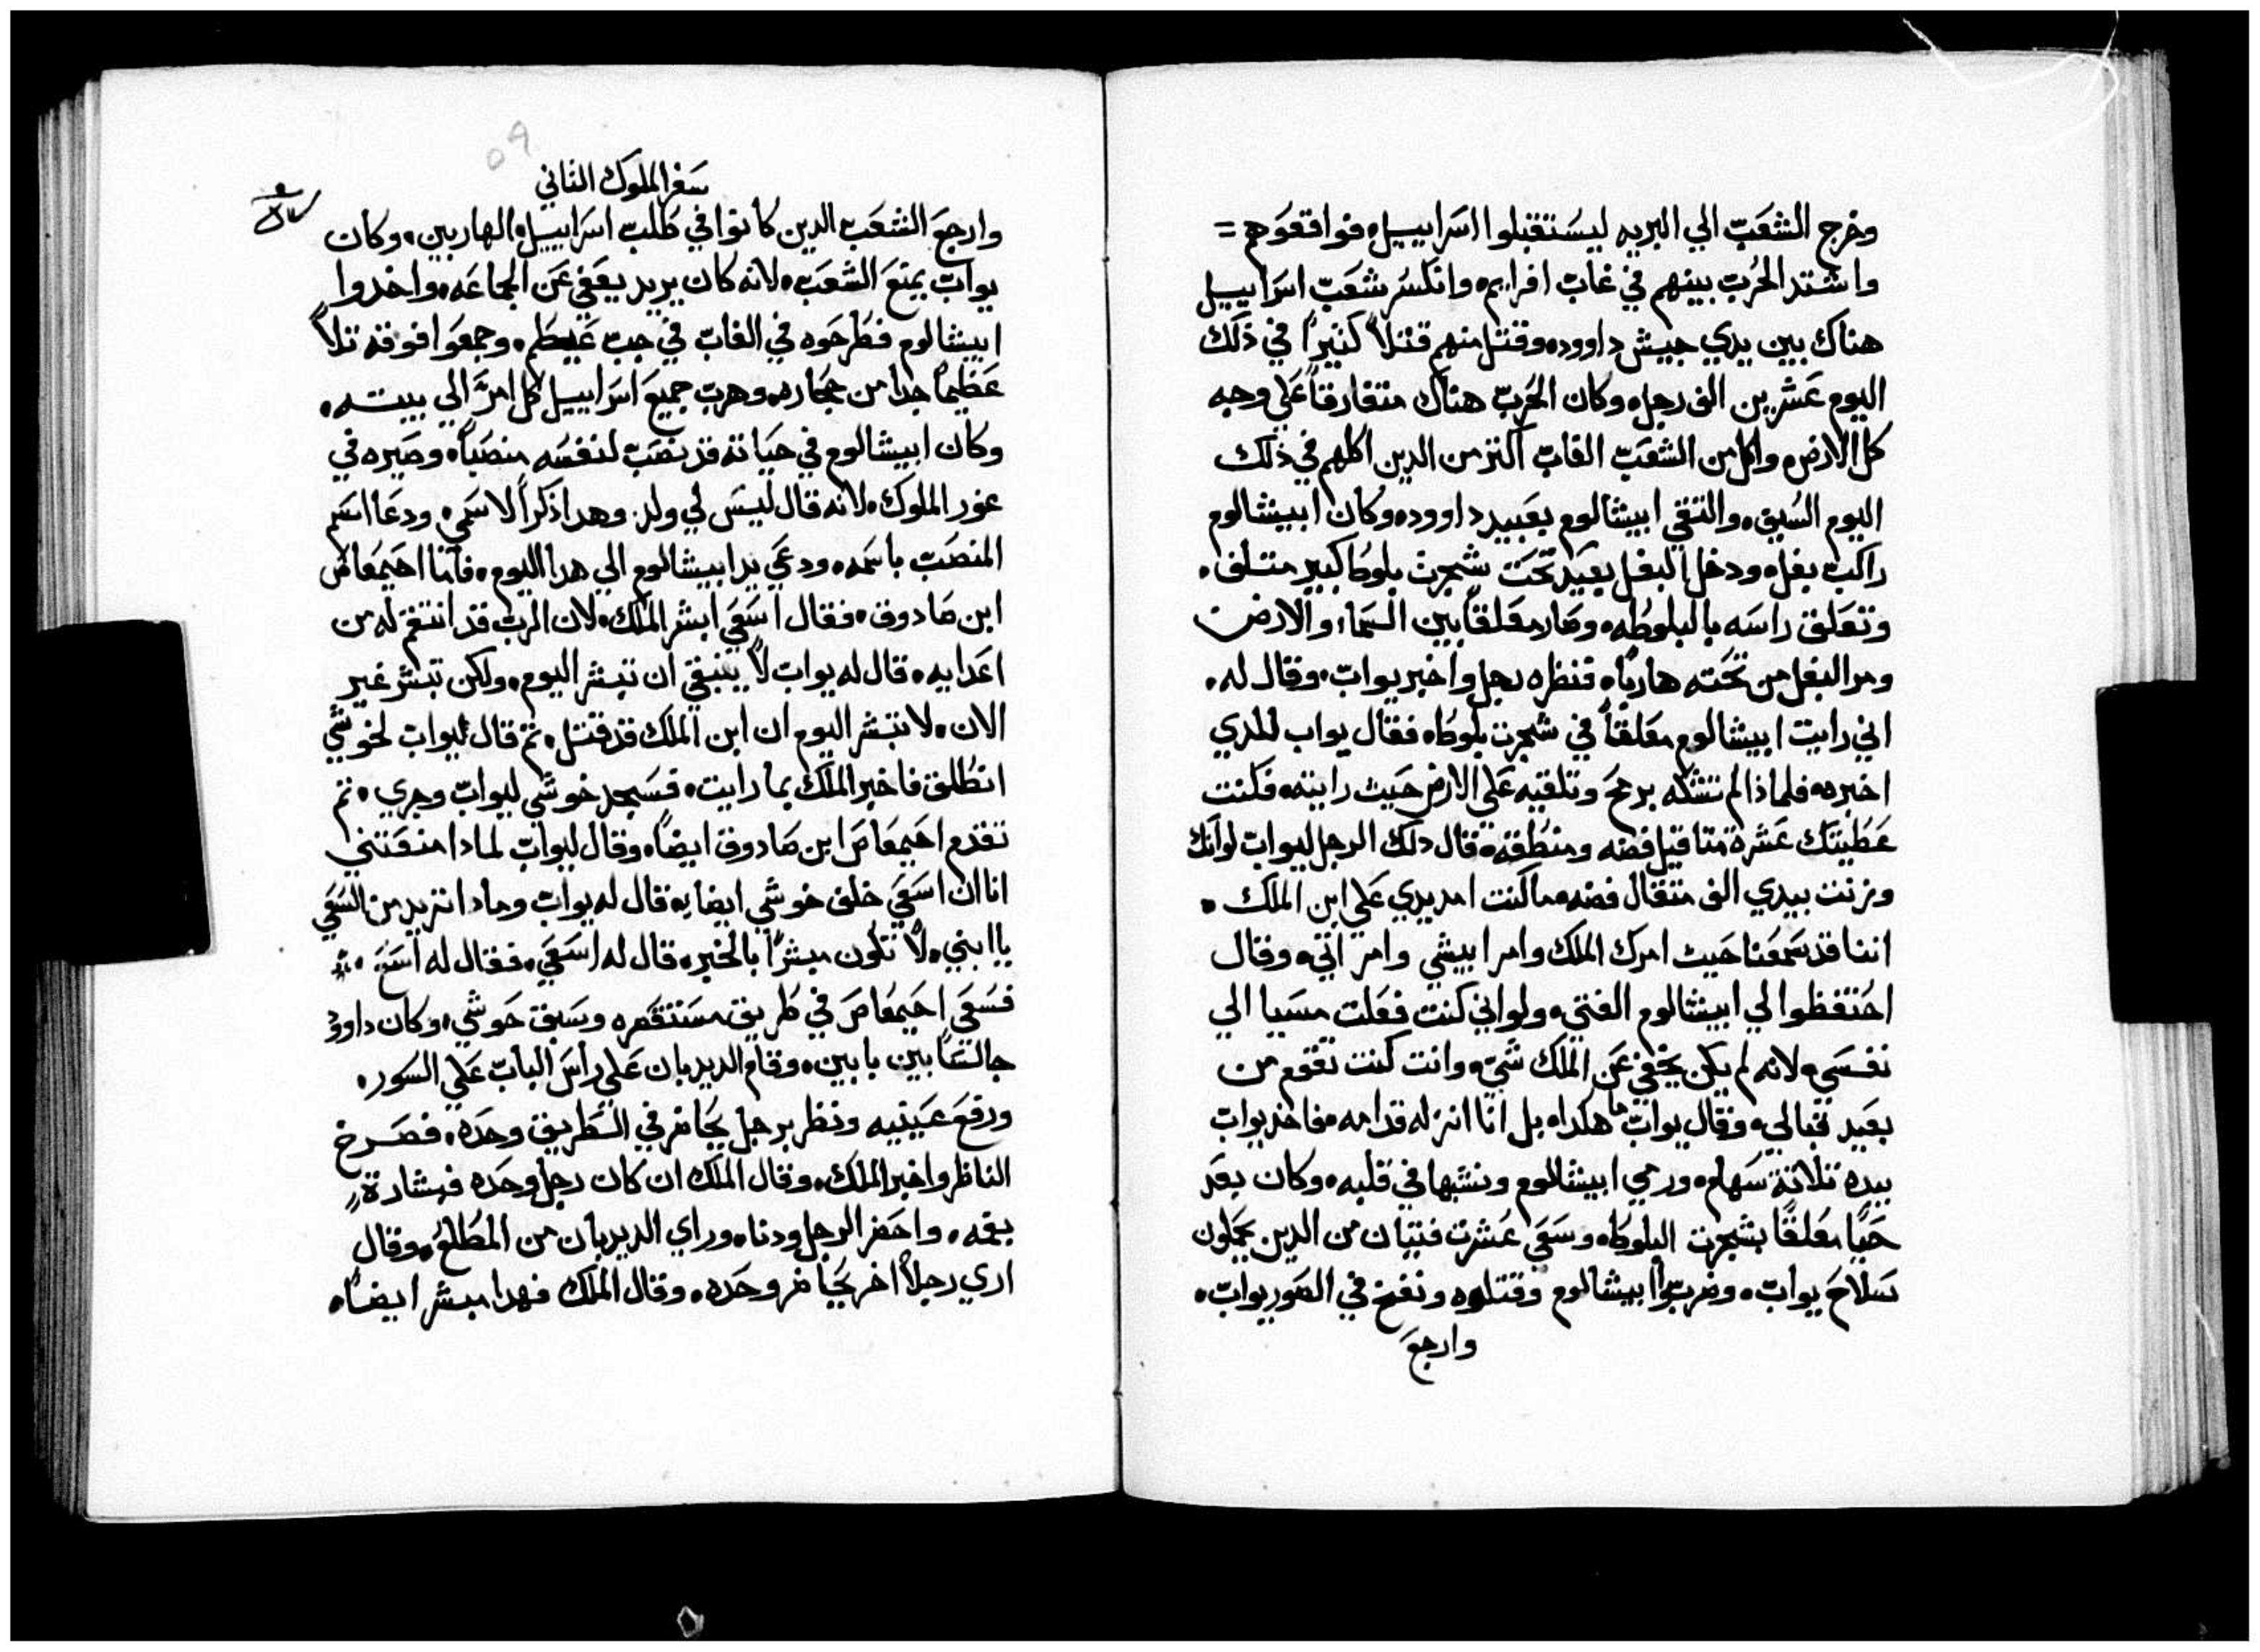 وخرج الشعب الي البريه ليستقبلوا اسراييل فواقعوهم =
واشتد الحرب بينهم في غاب افرايم وانكسر شعب اسراييل
هناك بين يدي جيش داوود وقتل منهم قتلاً كثيراً في ذلك
اليوم عشرين الف رجل وكان الحرب هناك متفارقاً علي وجه
كل الارض واكل من الشعب الغاب اكتر من الدين اكلهم في ذلك
اليوم السيف والتقي ابيشالوم بعبيد داوود وكان ابيشالوم
راكب بغل ودخل البغل بعيد تحت شجرت بلوطا كبير متلف
وتعلق راسه بالبلوطه وصار معلقاً بين السماء والارض
ومر البغل من تحته هارباً فنظره رجل واخبر يواب وقال له
اني رايت ابيشالوم معلقاً في شجرت بلوطا فقال يواب للدي
اخبره فلماذا لم تشكه برمح وتلقيه علي الارض حيث رايته فكنت
عطيتك عشرة متاقيل فضه ومنطقة قال دلك الرجل ليواب لوانك
وزنت بيدي الف متقال فضه ما كنت امد يدي علي ابن الملك
اننا قد سمعنا حيث امرك الملك وامر ابيشي وامر اتي وقال
احتفظوا لي ابيشالوم الفتي ولو اني كنت فعلت مسيا الي
نفسي لانه لم يكن يخفي عن الملك شي وانت كنت تقوم من
بعيد قبالي وقال يواب ما هكدا بل انا انزله قدامه فاخد يواب
بيده تلاتة سهام ورمي ابيشالوم ونشبها في قلبه وكان بعد
حيًا معلقًا بشجرت البلوطا وسعي عشرت فتيان من الدين يحملون
سلاح يواب وضربوا ابيشالوم وقتلوه ونفخ في الصور يواب
وارجع
سفر الملوك التاني
٥٩
وارجع الشعب الدين كانوا في طلب اسراييل الهاربين وكان
يواب يمنع الشعب لانه كان يريد يعفي عن الجماعه واخدوا
ابيشالوم فطرحوه في الغاب في جب عيظم وجمعوا فوقه تلاً
عظيماً جدا من حجاره وهرب جميع اسراييل كل امرَّ الي بيته
وكان ابيشالوم في حياته قد نصب لنفسه منصباً وصيره في
غور الملوك لانه قال ليس لي ولد وهدا ذكراً لاسمي ودعا اسم
المنصب باسمه ودعي يد ابيشالوم الي هدا اليوم فاما احيمعاص
ابن صادوق فقال اسعي ابشر الملك لان الرب قد انتقم له من
اعدايه قال له يواب لا ينبغي ان تبشر اليوم ولكن تبشر غير
الان لا تبشر اليوم ان ابن الملك قد قتل تم قال ليواب لخوشي
انطلق فاخبر الملك بما رايت فسجد خوشي ليواب وجري تم
تقدم احيمعاص ابن صادوق ايضاً وقال ليواب لمادا منعتني
انا ان اسعي خلف خوشي ايضا قال له يواب ومادا تريد من السعي
يا ابني لا تكون مبشرًا بالخير قال له اسعي فقال له اسع
فسعي احيمعاص في طريق مستقصره وسبق خوشي وكان داوود
جالسًا بين بابين وقام الديدبان علي راس الباب علي السور
ورفع عينيه ونظر برجل يحاضر في الطريق وحده فصرخ
الناظر واخبر الملك وقال الملك ان كان رجل وحده فبشارة
بفمه واحضر الرجل ودنا وراي الديدبان من المطلع وقال
اري رجلاً اخر يحاضر وحده وقال الملك فهدا مبشر ايضًا